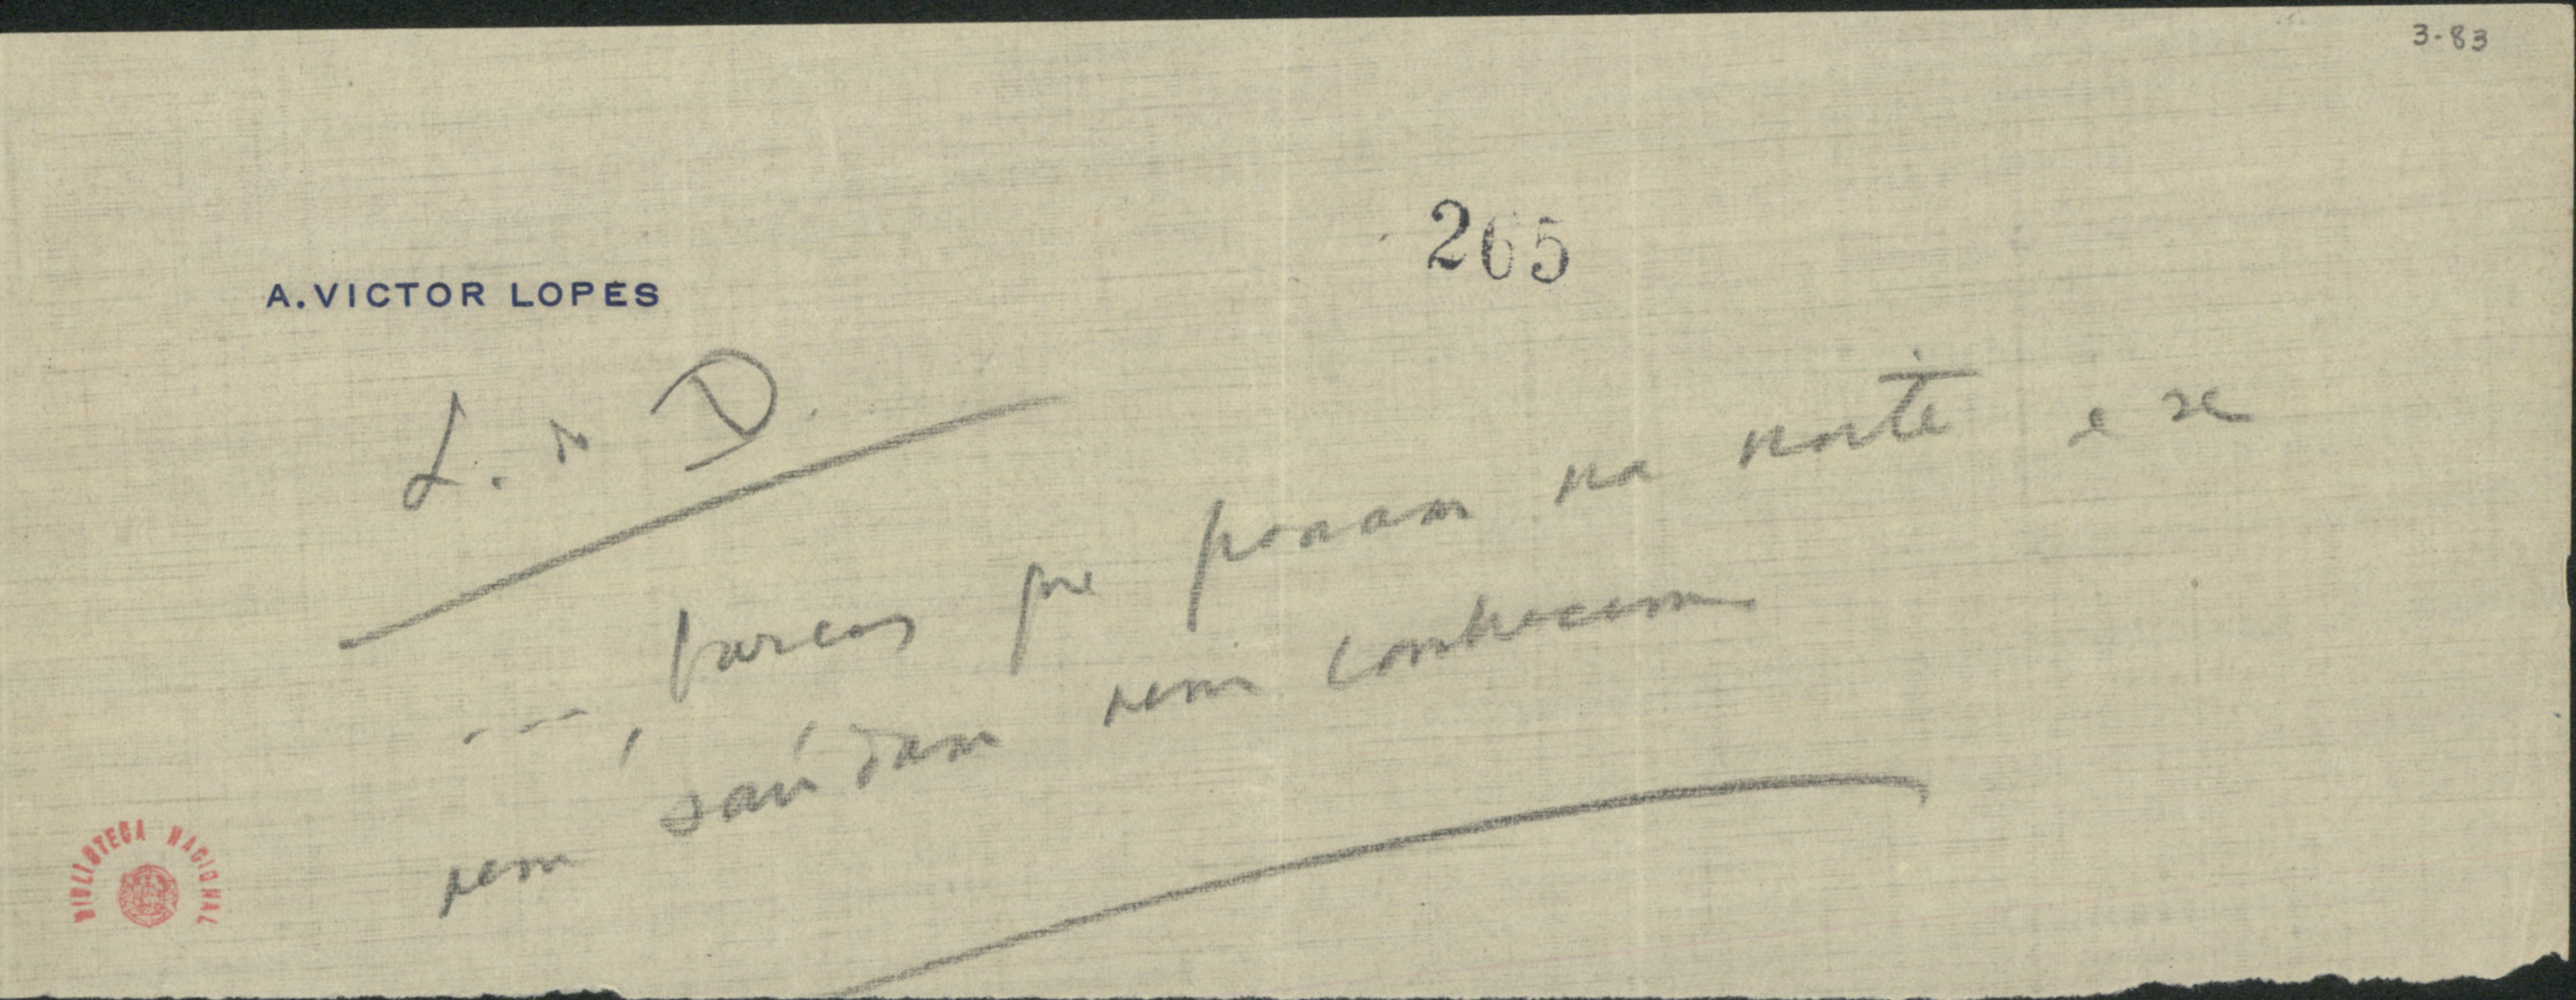 3-83
265
A. VICTOR LOPES
L. do D.
---, barcos que passam na noite e se
nem saúdam nem conhecem
BIBLIOTECA NACIONAL